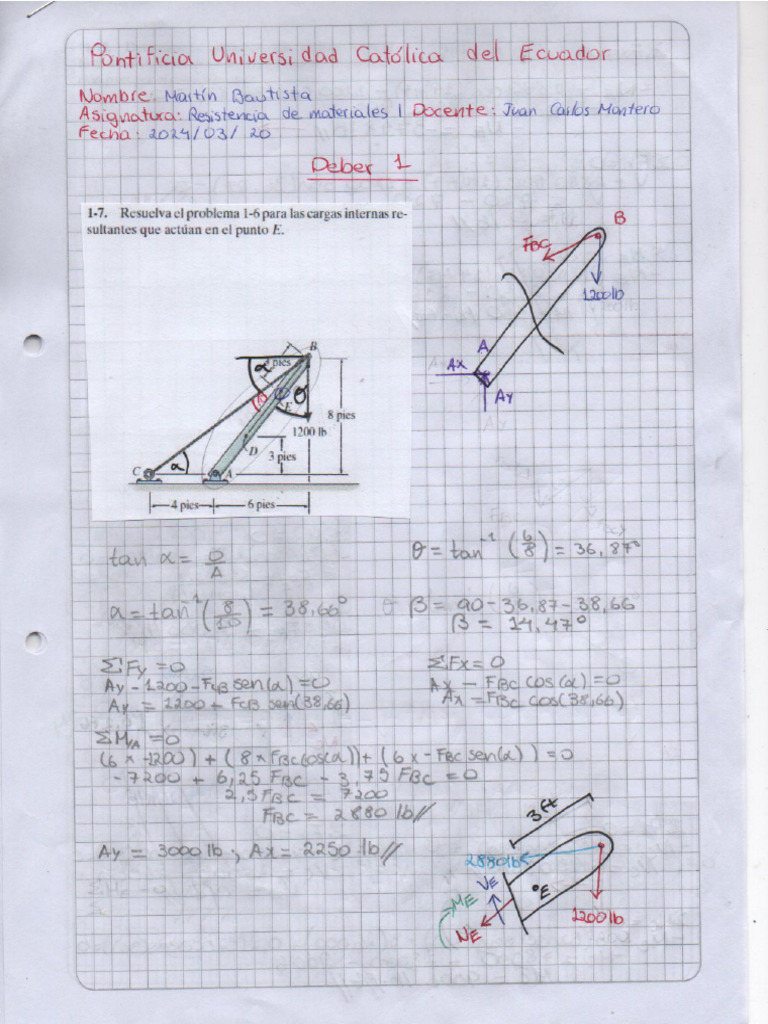 Pontificia Universidad Católica del Ecuador
Nombre: Martín Bautista
Asignatura: Resistencia de materiales I Docente: Juan Carlos Montero
Fecha: 2024/03/20
Deber 1
1-7. Resuelva el problema 1-6 para las cargas internas re-
sultantes que actúan en el punto E.
B
FBC
1200 lb
A
Ax
Ay
B
pies
α
θ
β
E
8 pies
1200 lb
D
3 pies
C
α
A
4 pies
6 pies
tan α = O/A
θ = tan⁻¹ (6/8) = 36,87°
α = tan⁻¹ (8/10) = 38,66°
β = 90 - 36,87 - 38,66
β = 14,47°
ΣFy = 0
Ay - 1200 - FCB sen(α) = 0
Ay = 1200 + FCB sen(38,66)
ΣFx = 0
Ax - FBC cos(α) = 0
Ax = FBC cos(38,66)
ΣM/A = 0
(6 x -1200) + (8 x FBC cos(α)) + (6 x - FBC sen(α)) = 0
- 7200 + 6,25 FBC - 3,75 FBC = 0
2,5 FBC = 7200
FBC = 2880 lb//
Ay = 3000 lb ; Ax = 2250 lb//
3 ft
2880 lb
VE
ME
NE
°E
1200 lb